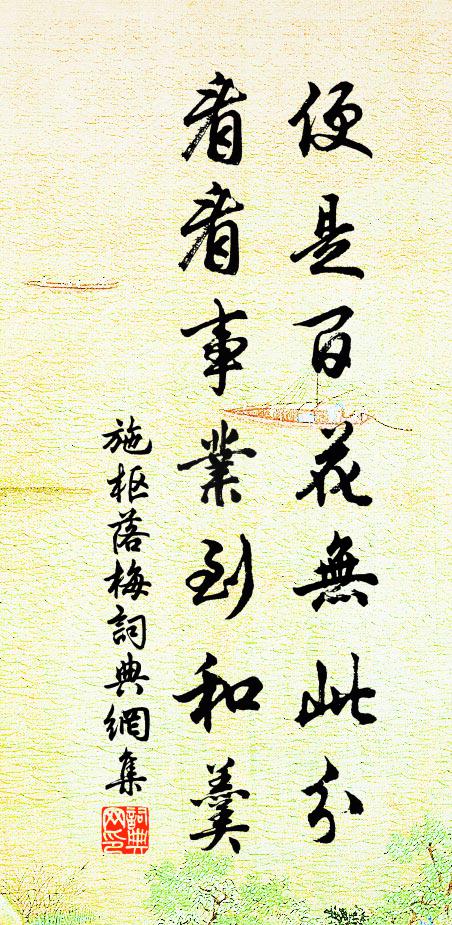 便是百花無此分
看看事業到和羹
施枢落梅詞典網集
詞典網印